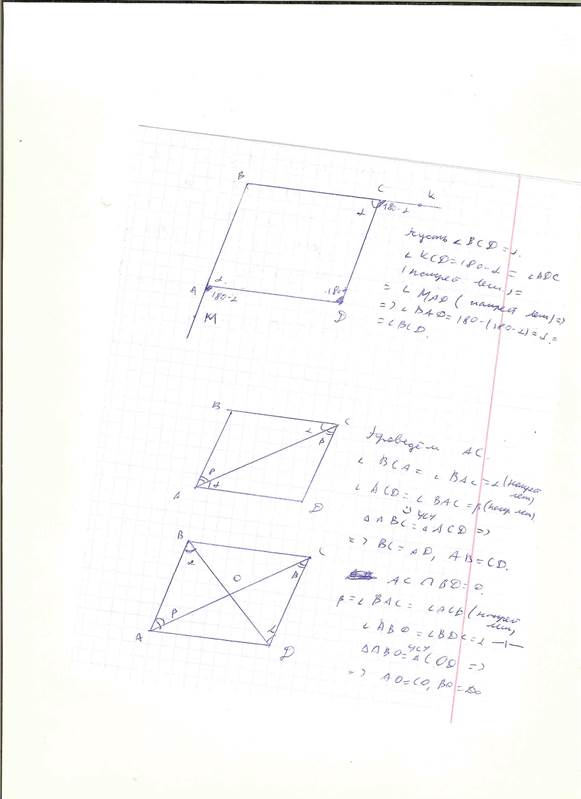 B
C
K
180-α
α
A
α
180-α
M
180-α
D
Пусть ∠BCD=α.
∠KCD=180-α=∠ADC
(накрест леж.)=
=∠MAD (накрест леж)=>
=>∠BAD=180-(180-α)=α=
=∠BCD.
B
C
α
β
β
α
A
D
Проведём AC.
∠BCA=∠BAC=α (накрест
леж)
∠ACD=∠BAC=β (накр леж)
=> УСУ
ΔABC=ΔACD =>
=> BC=AD, AB=CD.
B
C
α
O
β
β
α
A
D
AC∩BD=O.
β=∠BAC=∠ACD (накрест
леж)
∠ABO=∠BDC=α —||—
УСУ
ΔABO=ΔCOD =>
=> AO=CO, BO=DO